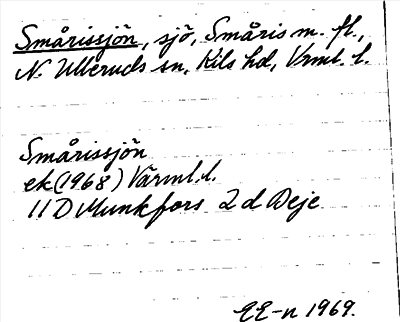 Smårissjön, sjö, Småris m. fl.,
N. Ulleruds sn, Kils hd, Vrml. l.
Smårissjön
ek (1968) Värml. l.
11 D Munkfors 2 d Deje
EE-n 1969.